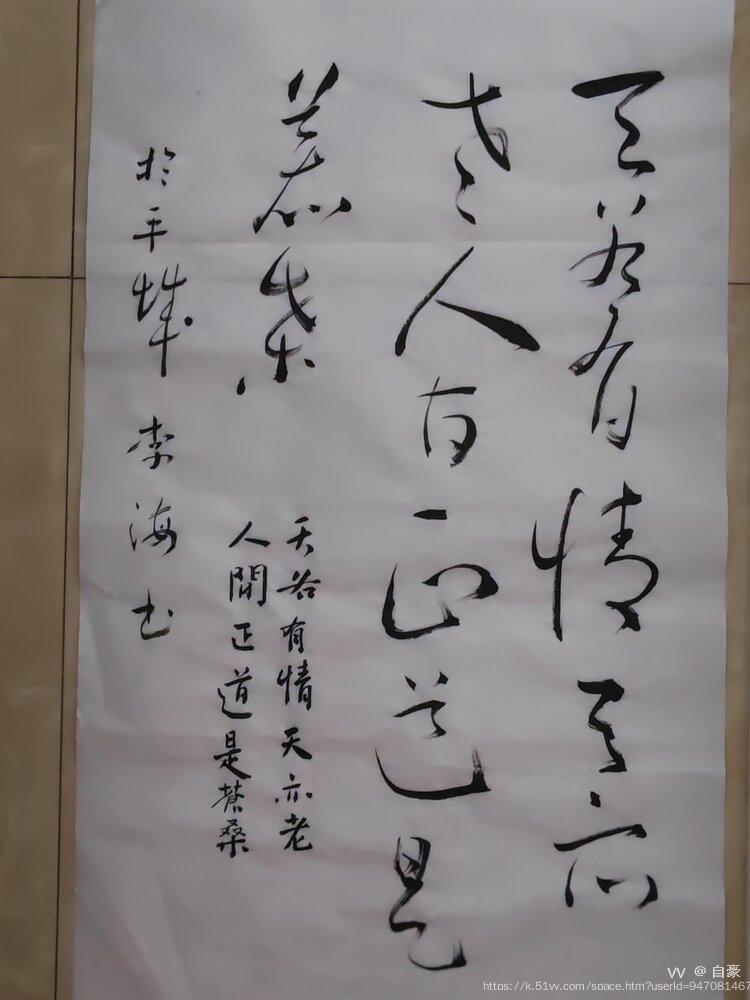 天若有情天亦
老人间正道是
蒼桑
天若有情天亦老
人間正道是蒼桑
於平城 李海书
VV @ 自豪
https://k.51vv.com/space.htm?userId=947081467